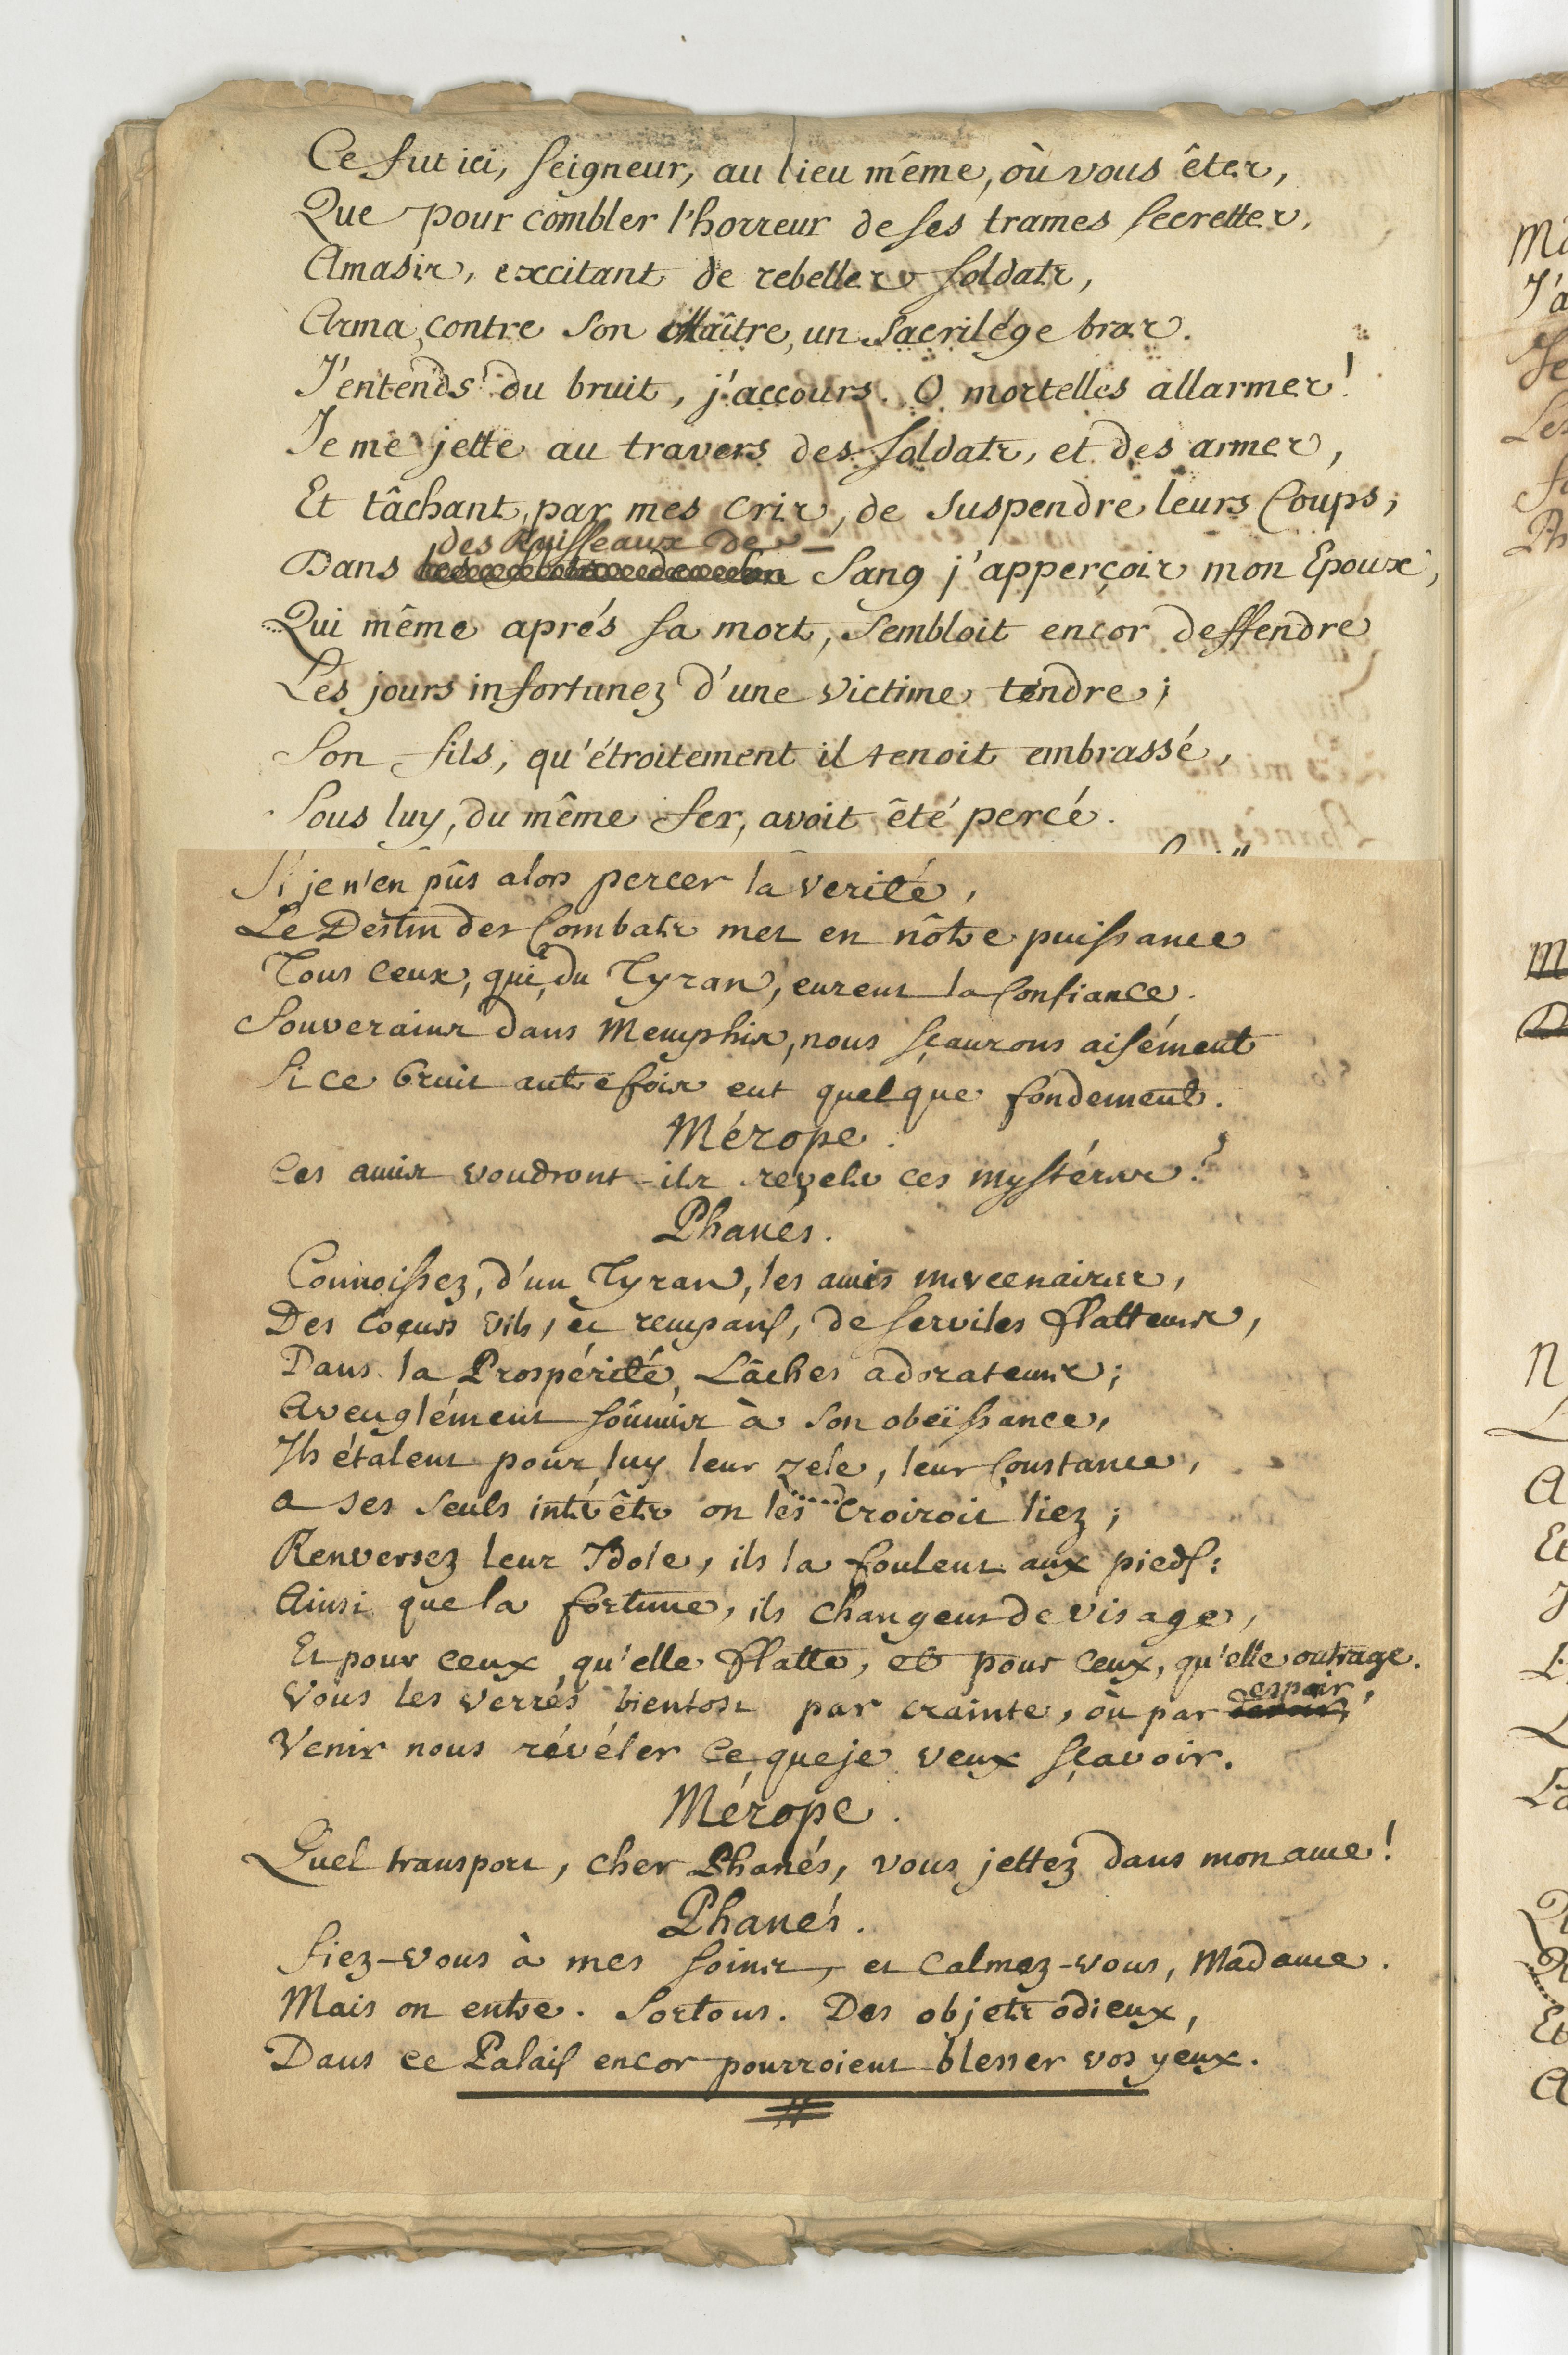 Ce fut ici, Seigneur, au lieu même, où vous êtes,
Que pour combler l'horreur de ses trames secrettes,
Amasis, excitant de rebelles soldats,
Arma contre son Maître, un sacrilége bras.
J'entends du bruit, j'accours. O mortelles allarmes!
Je me jette au travers des soldats, et des armes,
Et tâchant, par mes cris, de suspendre leurs Coups,
des Ruisseaux de
Dans Sang j'apperçois mon Epoux,
Qui même aprés sa mort, sembloit encor deffendre
Les jours infortunez d'une victime tendre;
Son fils, qu'étroitement il tenoit embrassé,
Sous luy, du même fer, avoit été percé.
Si je n'en pûs alors percer la verité,
Le Destin des Combats met en nôtre puissance
Tous ceux, qui, du Tyran, eurent la Confiance.
Souverains dans Memphis, nous sçaurons aisément
Si ce bruit autrefois eut quelque fondement.
Mérope.
Ces amis voudront-ils reveler ces mystéres?
Phanés.
Connoissez, d'un Tyran, les amis mercenaires,
Des Coeurs vils, et rempans, de serviles flatteurs,
Dans la Prospérité, Lâches adorateurs;
Aveuglément soûmis à son obeïssance,
Ils étalent pour luy leur zele, leur Constance,
a ses seuls intérêts on les croiroit liez;
Renversez leur Idole, ils la foulent aux pieds:
Ainsi que la fortune, ils changent de visage,
Et pour ceux qu'elle flatte, et pour ceux, qu'elle outrage.
espoir,
Vous les verrés bientost par crainte, où par devoir,
Venir nous révéler ce que je veux sçavoir.
Mérope.
Quel transport, cher Phanés, vous jettez dans mon ame!
Phanés.
fiez-vous à mes soins, et calmez-vous, Madame.
Mais on entre. Sortons. Des objets odieux,
Dans ce Palais encor pourroient blesser vos yeux.